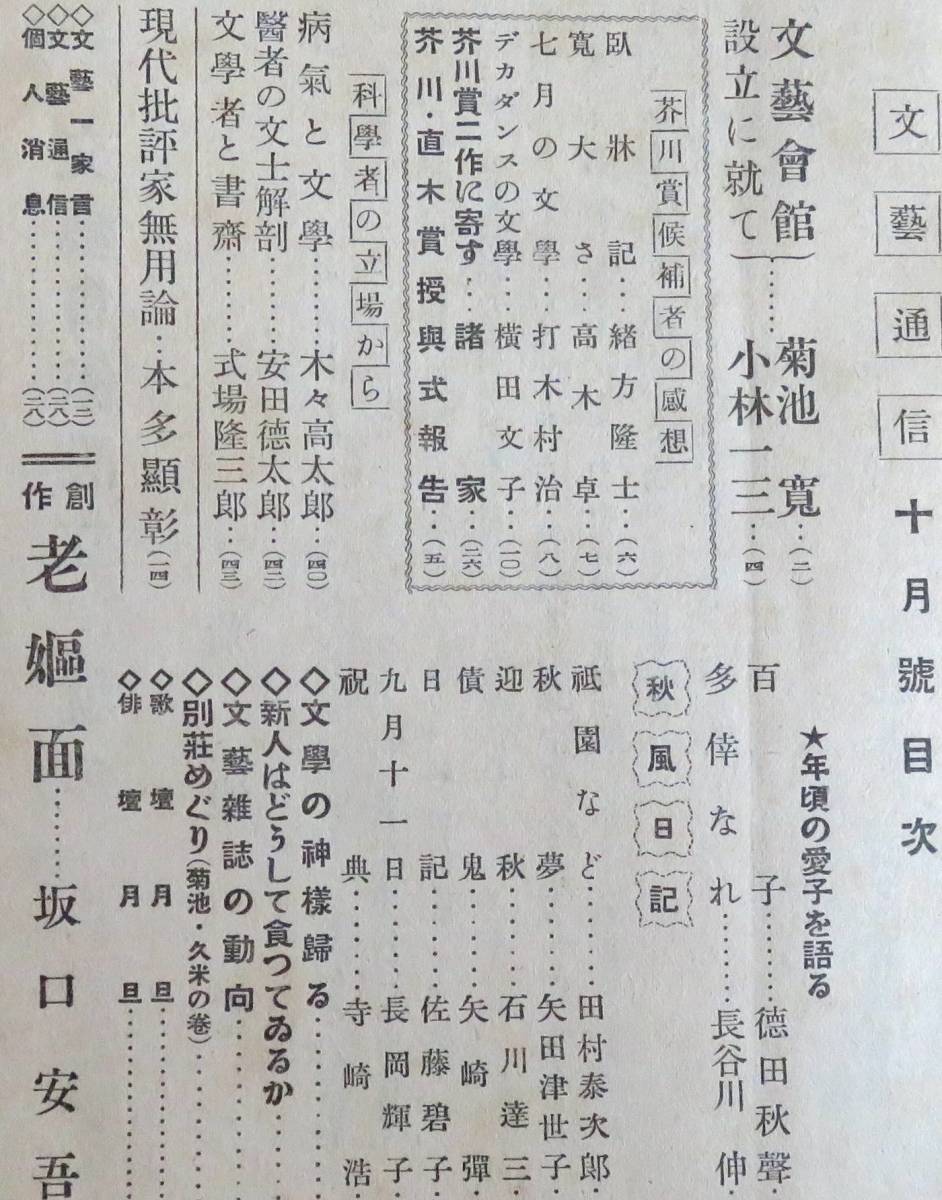 文藝通信 十月號目次
文藝會館
設立に就て
菊池寬‥(二)
小林一三‥(四)
芥川賞候補者の感想
臥牀記‥緒方隆士‥(六)
寬大さ‥高木卓‥(七)
七月の文學‥打木村治‥(八)
デカダンスの文學‥橫田文子‥(一〇)
芥川賞二作に寄す‥諸家‥(二六)
芥川・直木賞授與式報告‥(五)
科學者の立場から
病氣と文學‥‥木々高太郎‥(四〇)
醫者の文士解剖‥‥安田德太郎‥(四二)
文學者と書齋‥‥式場隆三郎‥(四三)
現代批評家無用論‥本多顯彰(一四)
◇文藝一家言‥‥(一三)
◇文藝通信‥‥(二八)
◇個人消息‥‥(二八)
★年頃の愛子を語る
百子‥‥德田秋聲
多倖なれ‥‥長谷川伸
秋風日記
祗園など‥‥田村泰次郎
秋夢‥‥矢田津世子
迎秋‥‥石川達三
債鬼‥‥矢崎彈
日記‥‥佐藤碧子
九月十一日‥‥長岡輝子
祝典‥‥寺崎浩
◇文學の神樣歸る‥‥
◇新人はどうして食つてゐるか‥‥
◇文藝雜誌の動向‥‥
◇別莊めぐり(菊池・久米の卷)‥‥
◇歌壇月旦‥‥
◇俳壇月旦‥‥
創作
老嫗面‥‥坂口安吾